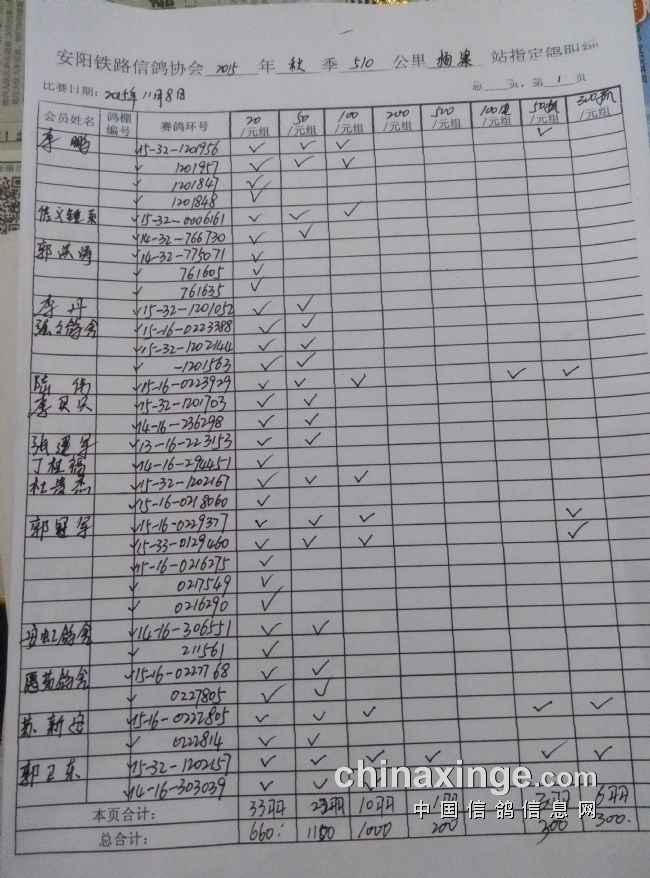 安阳铁路信鸽协会 2015 年 秋 季 510 公里 杨梁 站指定鸽明细
比赛日期: 2015年11月8日 总 页, 第 1 页
会员姓名 鸽棚编号 赛鸽环号 20/元组 50/元组 100/元组 200/元组 500/元组
李鹏 √15-32-1201956 √ √ √ √
√ 1201957 √ √ √
√ 1201847 √
√ 1201848 √
√15-32-0006161 √ √ √
√14-32-766730 √ √
郭洪涛 √14-32-775071 √
√ 761605 √
√ 761635 √
李丹 √15-32-1201052 √ √
√15-16-0223388 √ √
√15-32-1202144 √ √
√ -1201563 √ √
陈伟 √15-16-0223929 √ √ √ √ √
李贝贝 √15-32-1201703 √ √
√14-16-236298 √ √
张建军 √13-16-223153 √ √
丁桂福 √14-16-294451 √
杜贵杰 √15-32-1202167 √ √ √
√15-16-0218060 √
郭冠军 √15-16-0229377 √ √ √ √
√15-33-0129460 √ √ √ √
√15-16-0216275 √
√ 0217549 √
√ 0216290 √
安虹鸽舍 √14-16-306551 √ √
√ 211561 √
√15-16-0227768 √ √
√ 0227805 √ √
苏新安 √15-16-0222805 √ √ √ √ √
√ 0222814 √ √
郭卫东 √15-32-1202157 √ √ √ √ √ √
√14-16-303039 √ √
本页合计: 33羽 23羽 10羽 1羽 3羽 6羽
总合计: 660. 1150 1000 200 300 300.
chinaxinge.com
中国信鸽信息网